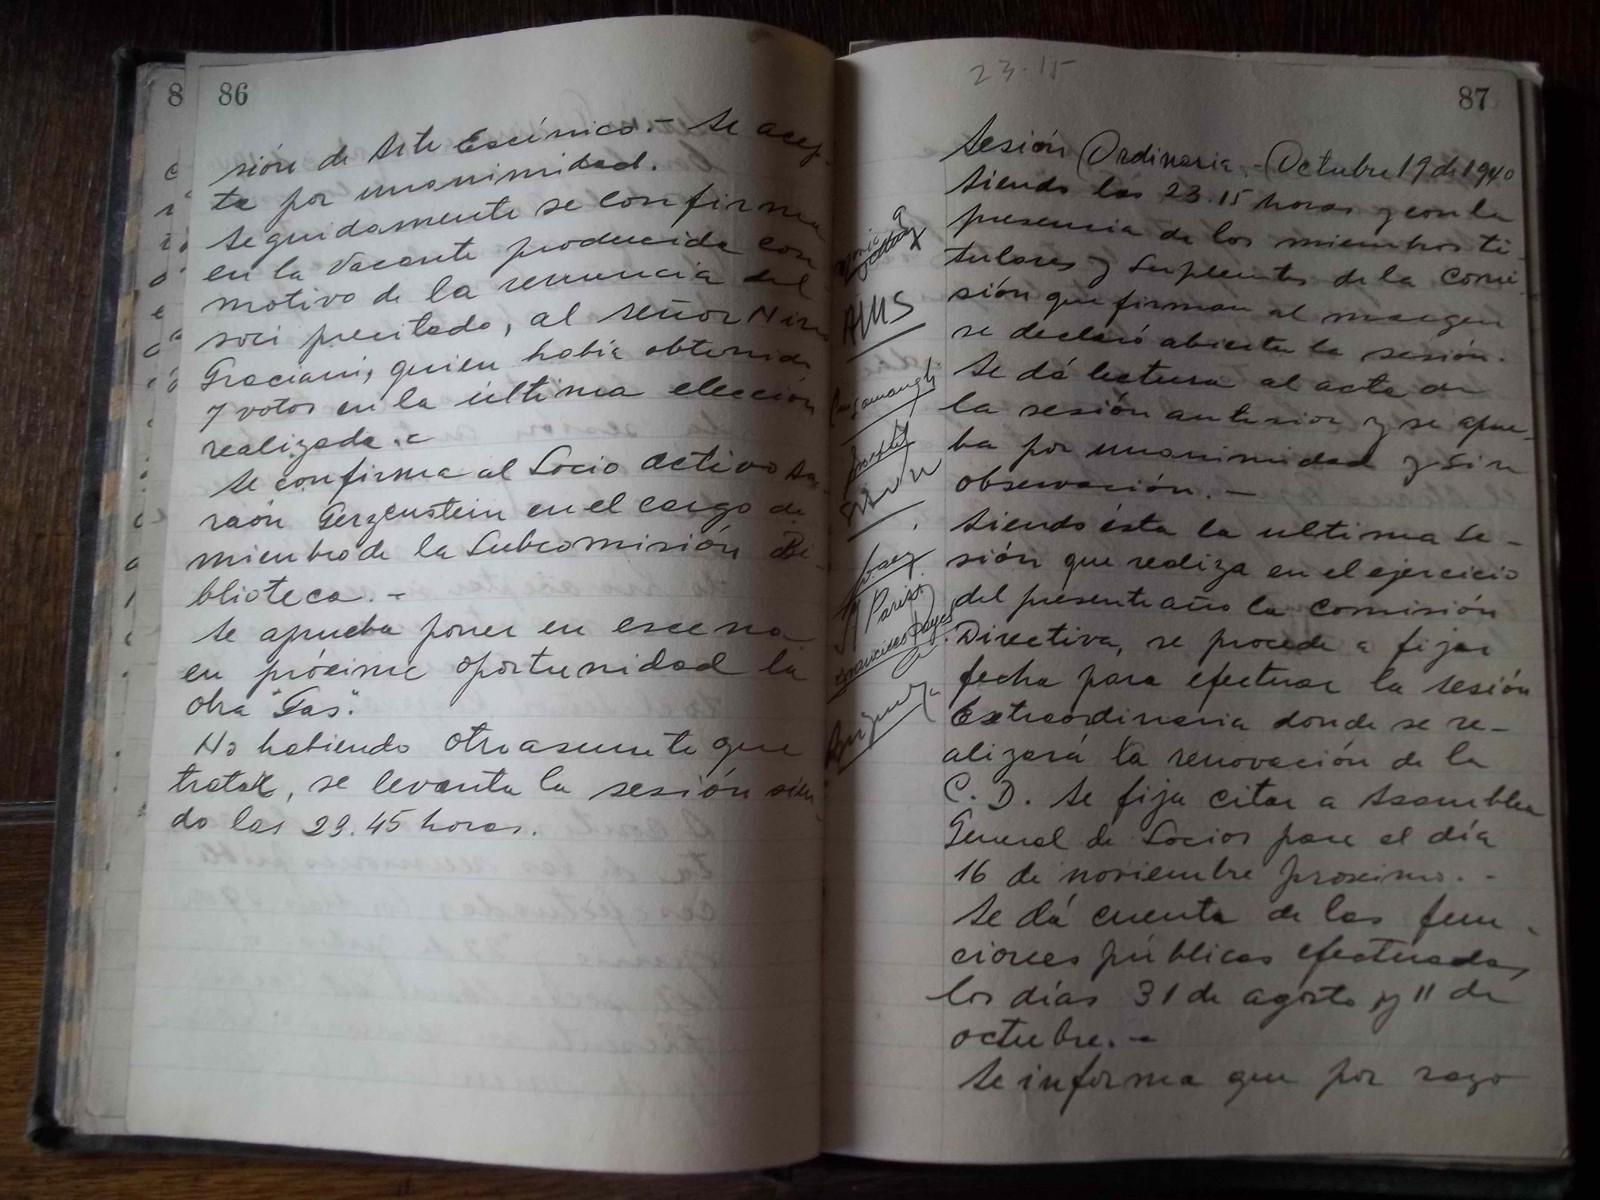 8
86
sión de Arte Escénico.- Se acep-
ta por unanimidad.
Seguidamente se confirma
en la vacante producida con
motivo de la renuncia del
socio precitado, al señor Nino
Graciani, quien había obtenido
7 votos en la última elección
realizada.-
Se confirma al Socio activo
Gerzenstein en el cargo de
miembro de la Subcomisión Bi-
blioteca.-
Se aprueba poner en escena
en próxima oportunidad la
obra "Gas".
No habiendo otro asunto que
tratar, se levanta la sesión sien-
do las 23.45 horas.
23.15
87
Sesión Ordinaria.- Octubre 19 de 1940
Siendo las 23.15 horas y con la
presencia de los miembros ti-
tulares y Suplentes de la Comi-
sión que firman al margen
se declaró abierta la sesión.
Se dá lectura al acta de
la sesión anterior y se aprue-
ba por unanimidad y sin
observación.-
Siendo ésta la ultima se-
sión que realiza en el ejercicio
del presente año la Comisión
Directiva, se procede a fijar
fecha para efectuar la sesión
Extraordinaria donde se re-
alizará la renovación de la
C. D. Se fija citar a Asamblea
General de Socios para el día
16 de noviembre proximo.-
Se dá cuenta de las fun-
ciones públicas efectuadas
los días 31 de agosto y 11 de
octubre.-
Se informa que por razo
AMS
Parisi